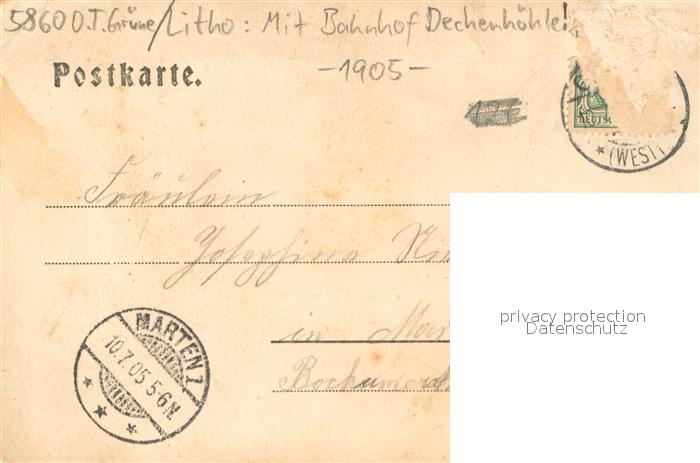 58600 O.T. Grüne/Litho: Mit Bahnhof Dechenhöhle!
Postkarte.
-1905-
DEUTSC
* (WEST)
Fräulein
Josephine
in Mar
MARTEN 1
10.7.05.5-6N
privacy protection
Datenschutz